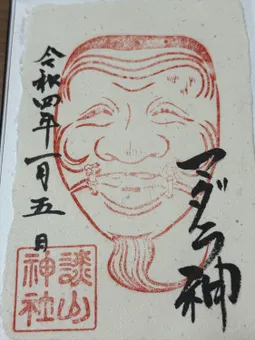 マダラ神
令和四年一月五日
談山
神社